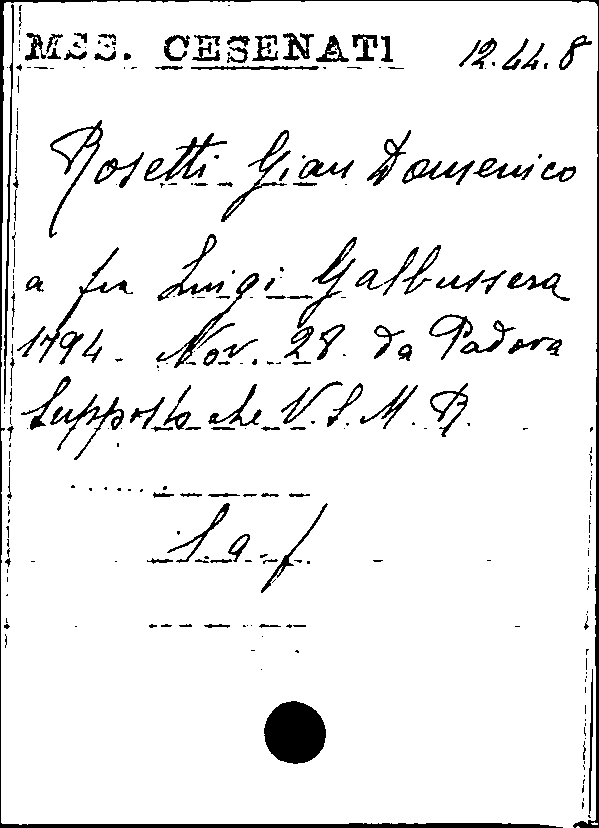 MSS. CESENATI 12.44.8
Rosetti Gian Domenico
a fra Luigi Galbussera
1794. Nov. 28. da Padova
Supposto che V. S. M. R.
.......
L. a. f.